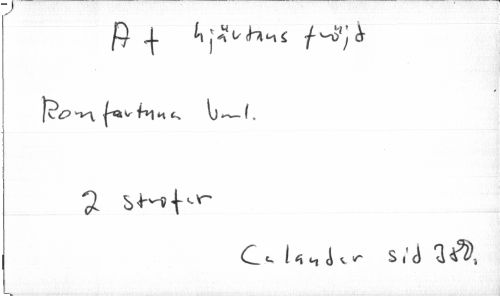 Af hjärtans fröjd
Romfartuna Vml.
2 strofer
Calander sid 380.